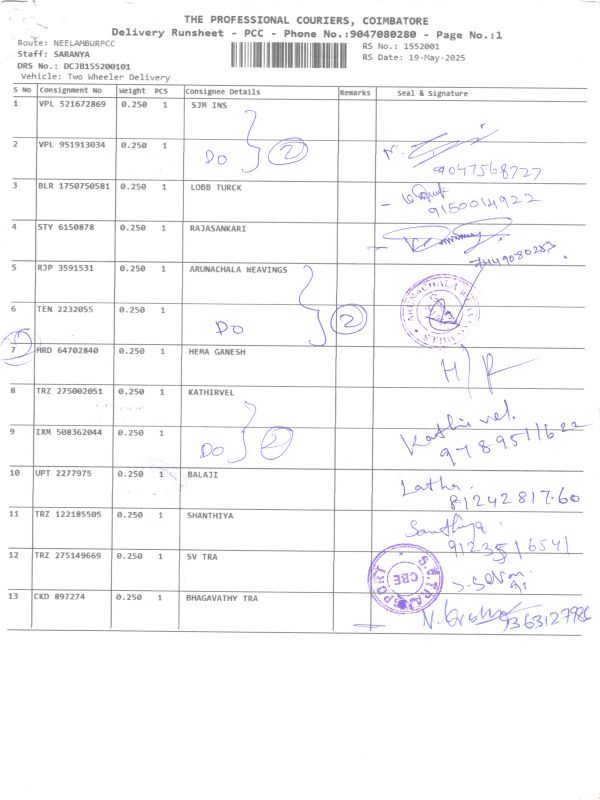 THE PROFESSIONAL COURIERS, COIMBATORE
Delivery Runsheet - PCC - Phone No.:9047080280 - Page No.:1
Route: NEELAMBURPCC
RS No.: 1552001
Staff: SARANYA
RS Date: 19-May-2025
DRS No.: DCJB155200101
Vehicle: Two Wheeler Delivery
S No Consignment No Weight PCS Consignee Details Remarks Seal & Signature
1 VPL 521672869 0.250 1 SJM INS
2 VPL 951913034 0.250 1 DO 2 9047568727
3 BLR 1750750581 0.250 1 LOBB TURCK 9150014922
4 STY 6150878 0.250 1 RAJASANKARI 7449080283
5 RJP 3591531 0.250 1 ARUNACHALA WEAVINGS
6 TEN 2232055 0.250 1 DO 2
7 HRD 64702840 0.250 1 HEMA GANESH
8 TRZ 275002051 0.250 1 KATHIRVEL Kathirvel.
9 IXM 508362044 0.250 1 DO 2 9789511622
10 UPT 2277975 0.250 1 BALAJI Latha. 8124281760
11 TRZ 122185505 0.250 1 SHANTHIYA Santhiya. 9123516541
12 TRZ 275149669 0.250 1 SV TRA CBE
13 CKD 897274 0.250 1 BHAGAVATHY TRA 9363127986